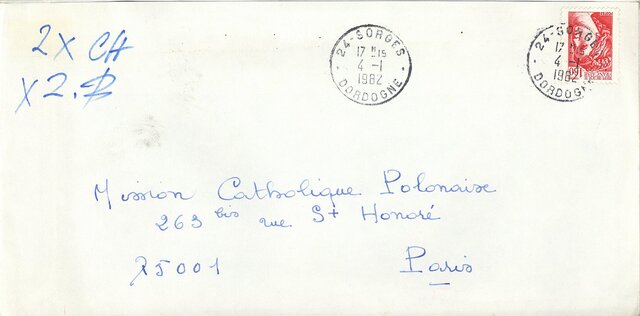 2 X CH
X 2.
24-SORGES
17 H 15
4 -1
1982
DORDOGNE
24-SORGES
17 H 15
4 -1
1982
DORDOGNE
Mission Catholique Polonaise
263 bis rue St Honoré
75001 Paris